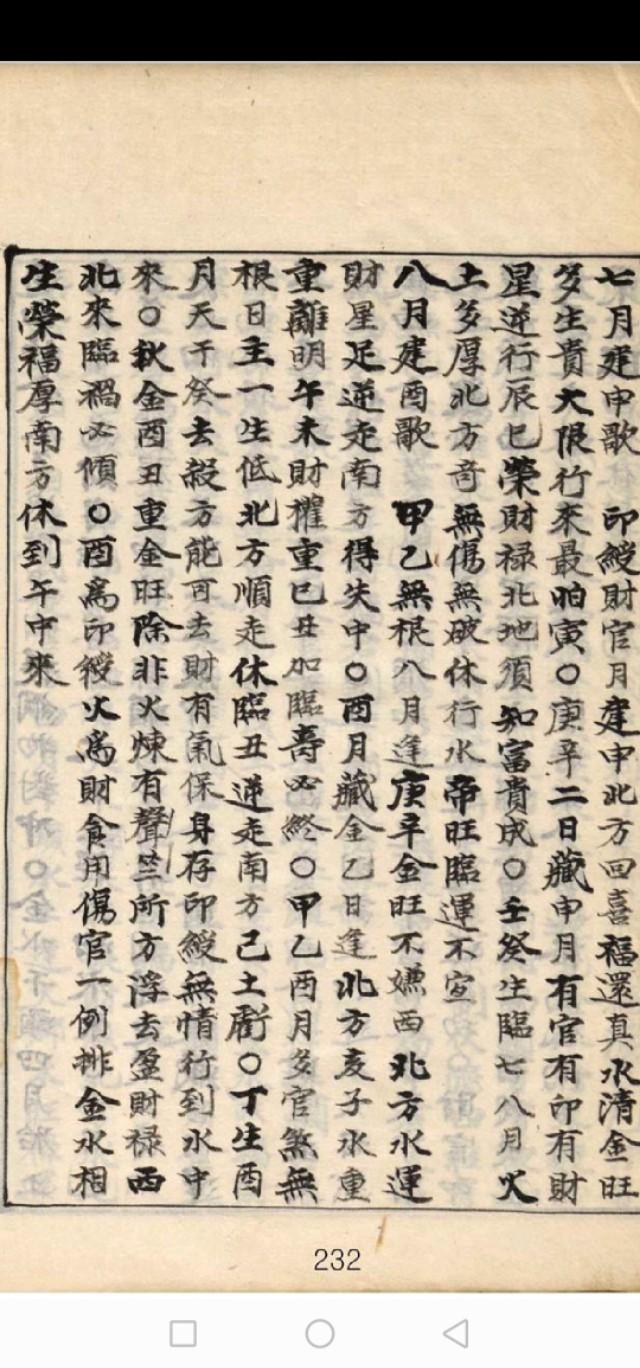 七月建申歌　印綬財官月建申北方四喜福還真水清金旺
多生貴大限行來最怕寅〇庚辛二日藏申月有官有印有財
星逆行辰巳榮財禄北地須知富貴成〇壬癸生臨七八月火
土多厚北方竒無傷無破休行水帝旺臨運不宣
八月建酉歌　甲乙無根八月逢庚辛金旺不嫌西北方水運
財星足逆走南方得失中〇酉月藏金乙日逢北方亥子水重
重離明午未財權重巳丑加臨壽必終〇甲乙酉月多官煞無
根日主一生低北方順走休臨丑逆走南方己土虧〇丁生酉
月天干癸去殺方能可去財有氣保身存印綬無情行到水中
來〇秋金酉丑重金旺除非火煉有聲竺所方浮去盈財禄西
北來臨禍必傾〇酉為印綬火為財食用傷官一例排金水相
生榮福厚南方休到午中來
232